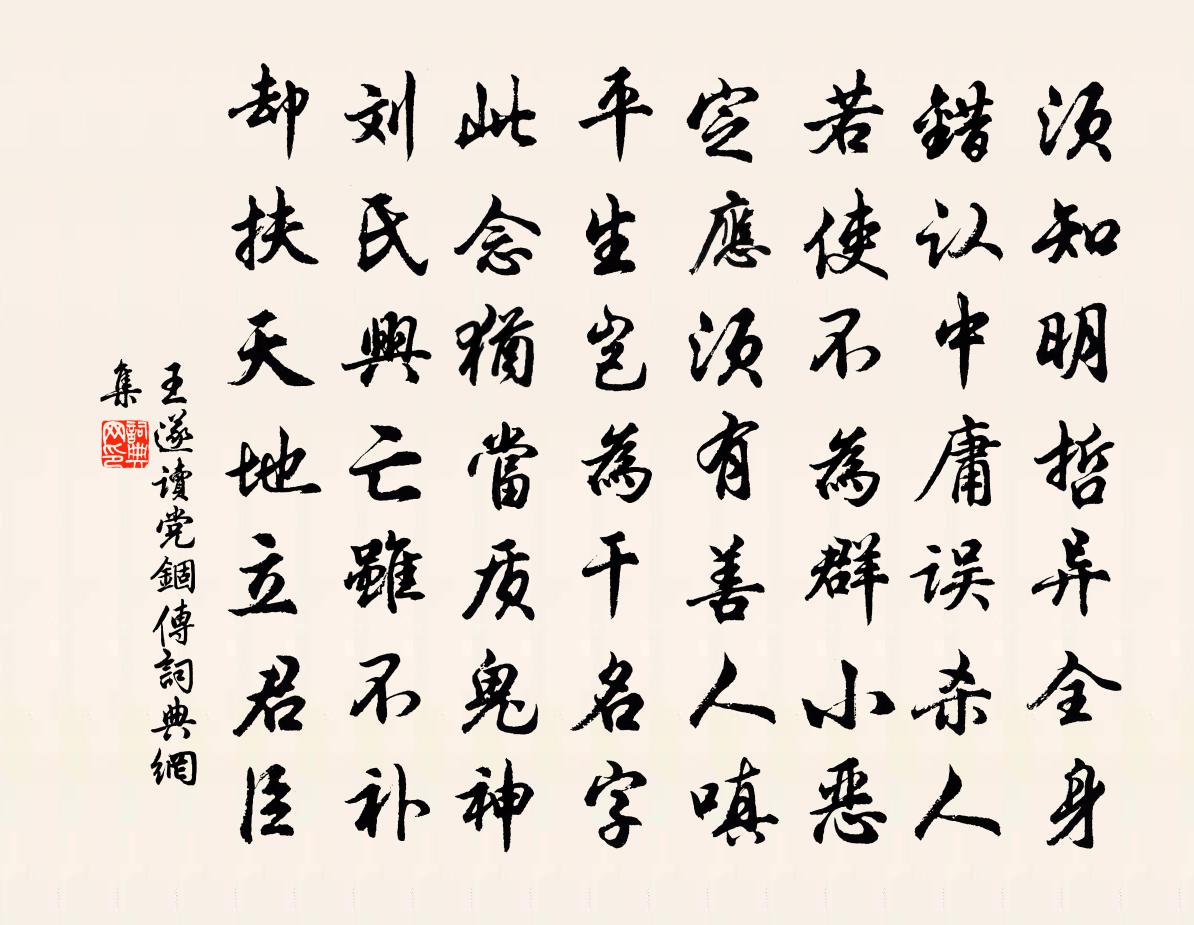 须知明哲异全身
错认中庸误杀人
若使不為群小恶
定應须有善人嗔
平生岂為干名字
此念猶當质鬼神
刘氏興亡雖不补
却扶天地立君臣
王遂读党錮傳詞典網
集
詞典网印